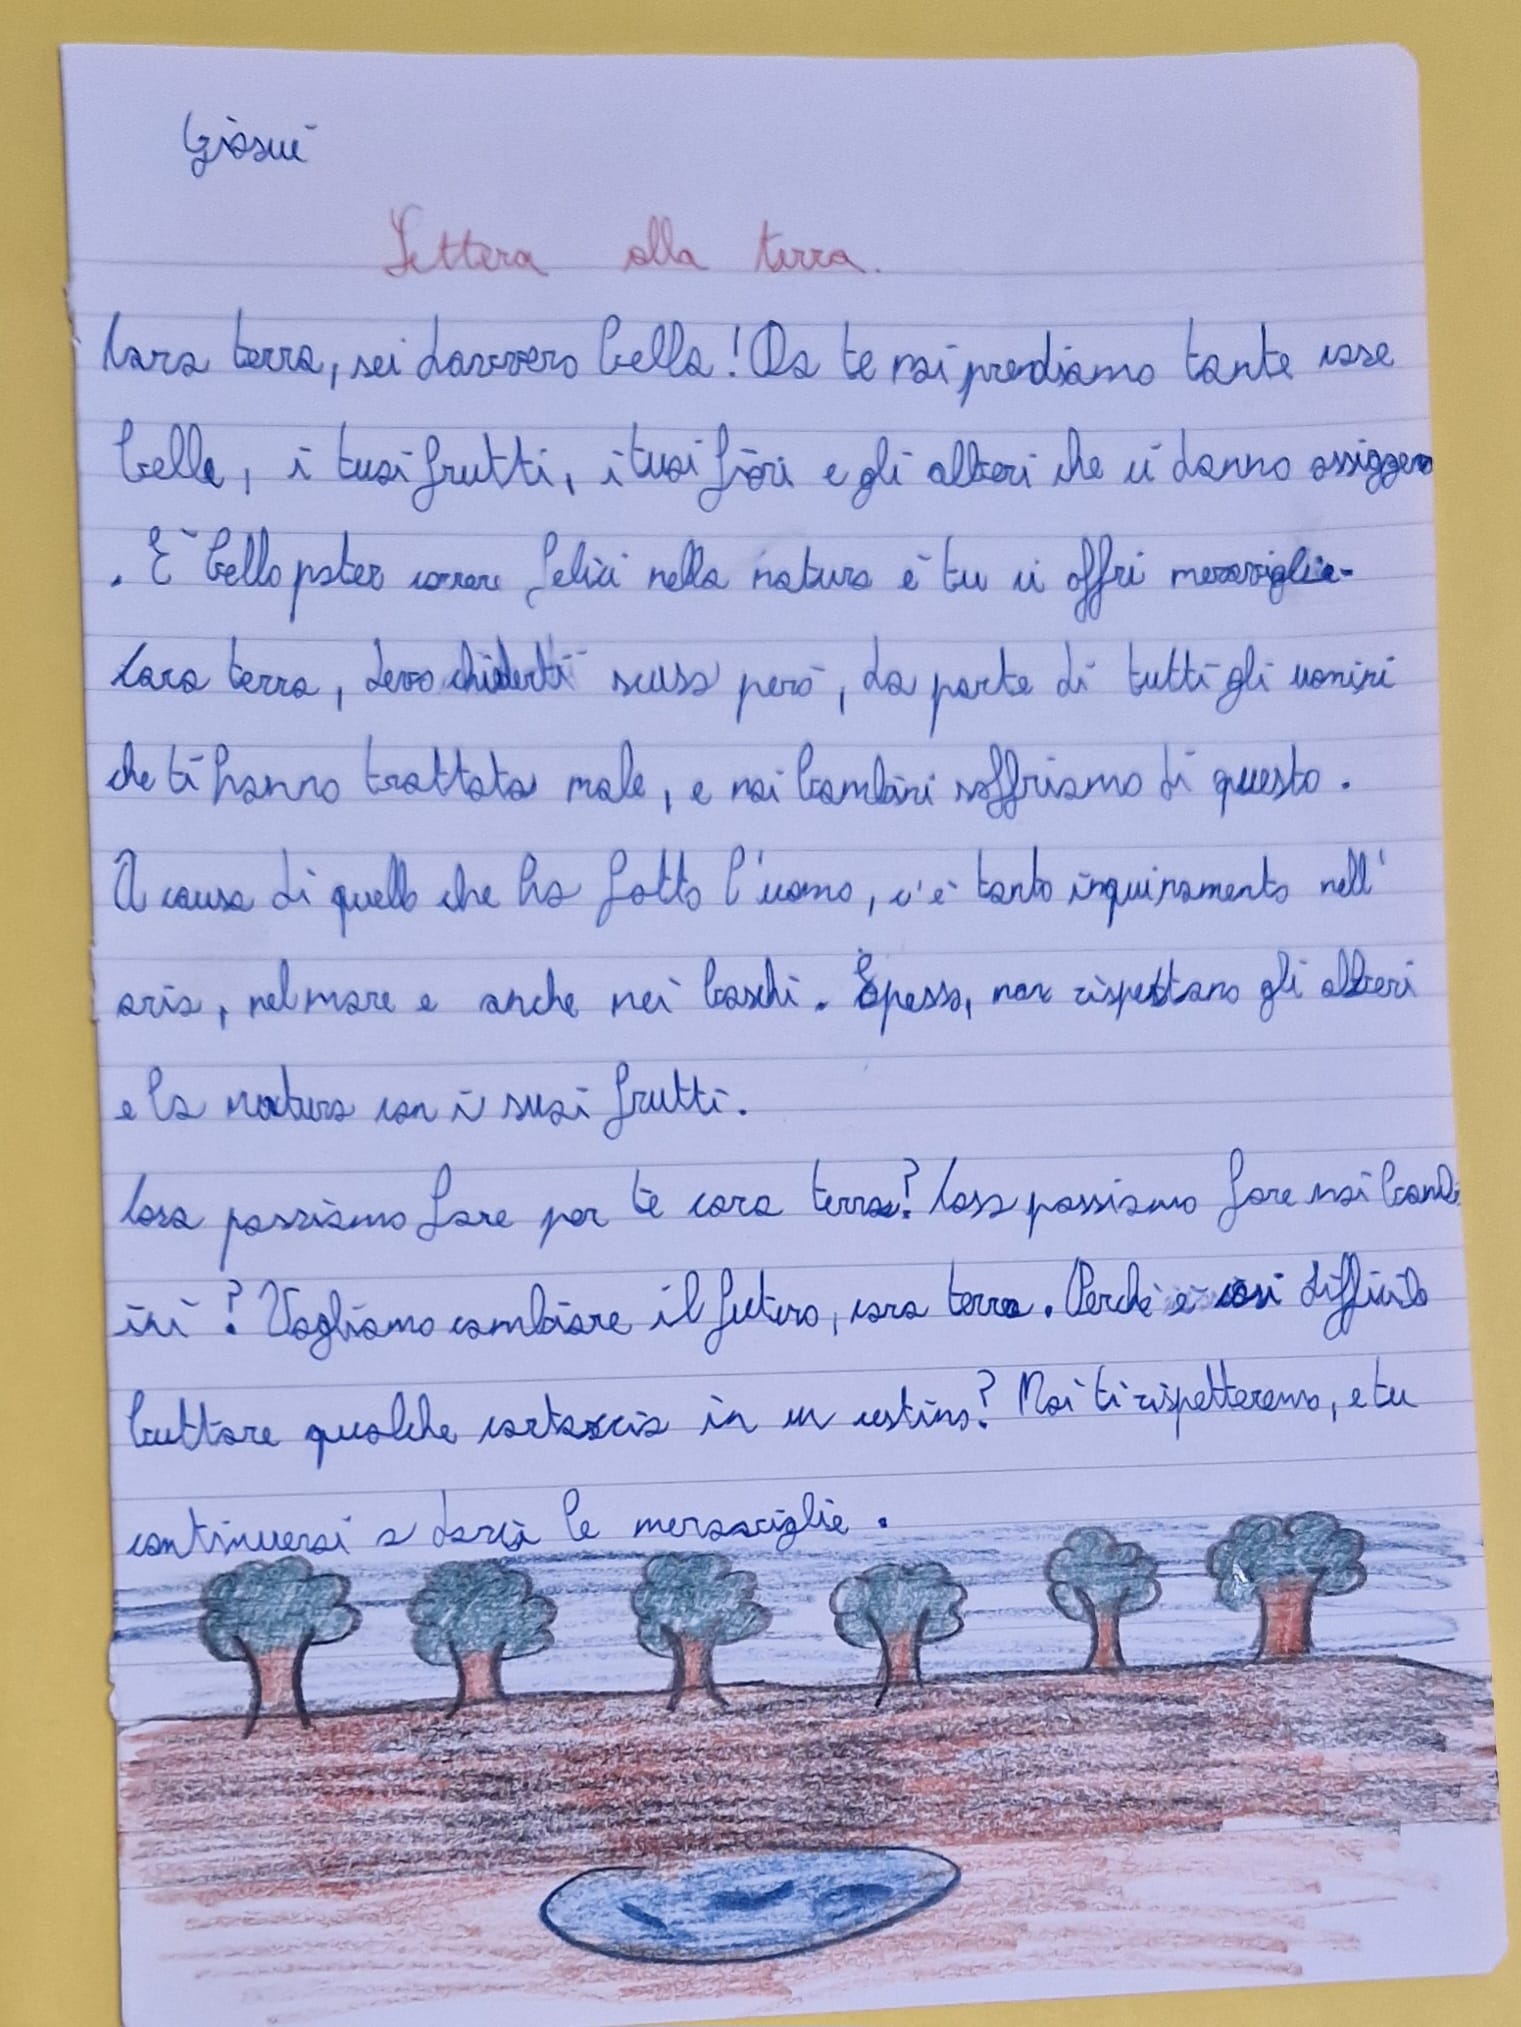 Giosuè
Lettera alla terra.
Cara terra, sei davvero bella! Da te noi prendiamo tante cose
belle, i tuoi frutti, i tuoi fiori e gli alberi che ci danno ossiggeno
. È bello poter correre felici nella natura è tu ci offri meraviglie.
Cara terra, devo chiderti scusa però, da parte di tutti gli uomini
che ti hanno trattata male, e noi bambini soffriamo di questo.
A causa di quello che ha fatto l'uomo, c'è tanto inquinamento nell'
aria, nel mare e anche nei boschi. Spesso, non rispettano gli alberi
e la natura con i suoi frutti.
Cosa possiamo fare per tè cara terra? Cosa possiamo fare noi bamb
ini? Vogliamo cambiare il futuro, cara terra. Perché è così difficile
buttare qualche cartaccia in un cestino? Noi ti rispetteremo, e tu
continuerai a darci le meraviglie.